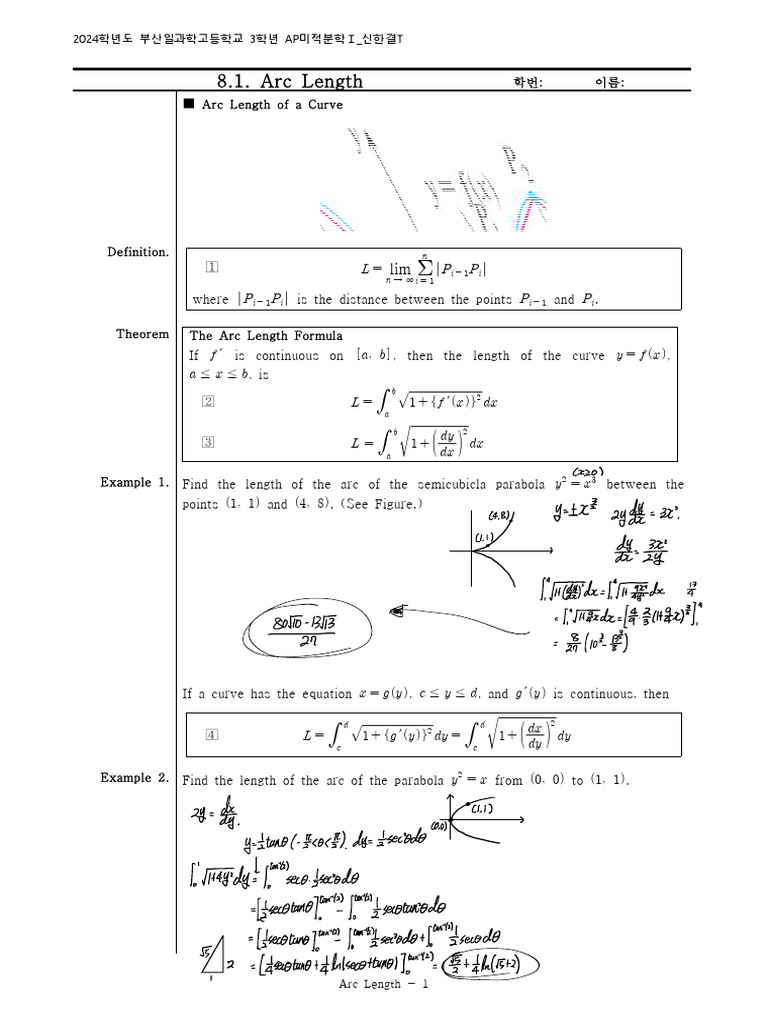 2024학년도 부산일과학고등학교 3학년 AP미적분학Ⅰ_신한결T
8.1. Arc Length 학번: 이름:
■ Arc Length of a Curve
y
P
y=f(x)
P
Definition.
1 L = lim_{n→∞} ∑_{i=1}^{n} |P_{i-1}P_i|
where |P_{i-1}P_i| is the distance between the points P_{i-1} and P_i.
Theorem
The Arc Length Formula
If f′ is continuous on [a, b], then the length of the curve y=f(x),
a ≤ x ≤ b, is
2 L = ∫_a^b √(1+{f′(x)}²) dx
3 L = ∫_a^b √(1+(dy/dx)²) dx
Example 1. Find the length of the arc of the semicubicla parabola y² = x³ between the
(x≥0)
points (1, 1) and (4, 8). (See Figure.)
y=±x^{3/2} 2y dy/dx = 3x².
(4,8)
(1,1)
dy/dx = 3x²/2y
∫_1^4 √(1+(dy/dx)²) dx = ∫_1^4 √(1+9x⁴/4y²) dx 13/4
= ∫_1^4 √(1+9/4 x) dx = [4/9 · 2/3 (1+9/4 x)^{3/2}]_1^4
(80√10 - 13√13)/27
= 8/27 (10^{3/2} - 13^{3/2}/8)
If a curve has the equation x = g(y), c ≤ y ≤ d, and g′(y) is continuous, then
4 L = ∫_c^d √(1+{g′(y)}²) dy = ∫_c^d √(1+(dx/dy)²) dy
Example 2. Find the length of the arc of the parabola y² = x from (0, 0) to (1, 1).
2y = dx/dy.
(1,1)
(0,0)
y=½tanθ (-π/2<θ<π/2). dy=½sec²θdθ
∫_0^1 √(1+4y²) dy = ∫_0^{tan⁻¹(2)} secθ·½sec²θdθ
= [½secθtanθ]_0^{tan⁻¹(2)} - ∫_0^{tan⁻¹(2)} ½secθtan²θdθ
= [½secθtanθ]_0^{tan⁻¹(2)} - ∫_0^{tan⁻¹(2)} ½sec³θdθ + ∫_0^{tan⁻¹(2)} ½secθdθ
√5
2
1
= [¼secθtanθ+¼ln|secθ+tanθ|]_0^{tan⁻¹(2)} = √5/2 + ¼ln(√5+2)
Arc Length - 1